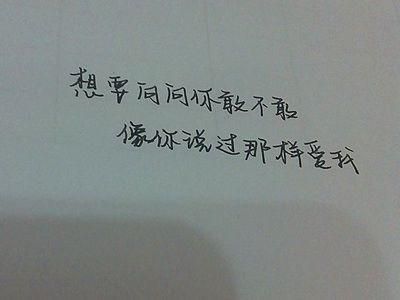 想要问问你敢不敢
像你说过那样爱我